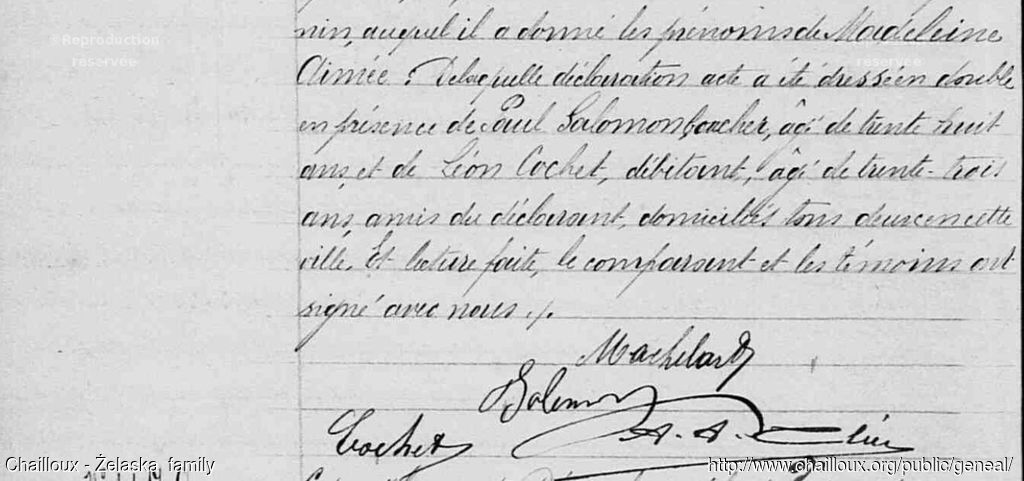 Reproduction
réservée
nin, auquel il a donné les prénoms de Madeleine
Aimée. Delaquelle déclaration acte a été dressé en double
en présence de Paul Salomon, boucher, âgé de trente huit
ans, et de Léon Cochet, débitant, âgé de trente-trois
ans, amis du déclarant, domiciliés tous deux en cette
ville. Et lecture faite, le comparant et les témoins ont
signé avec nous ./.
Machelard
Salomon
Cochet
Chailloux - Żelaska family
http://www.chailloux.org/public/geneal/